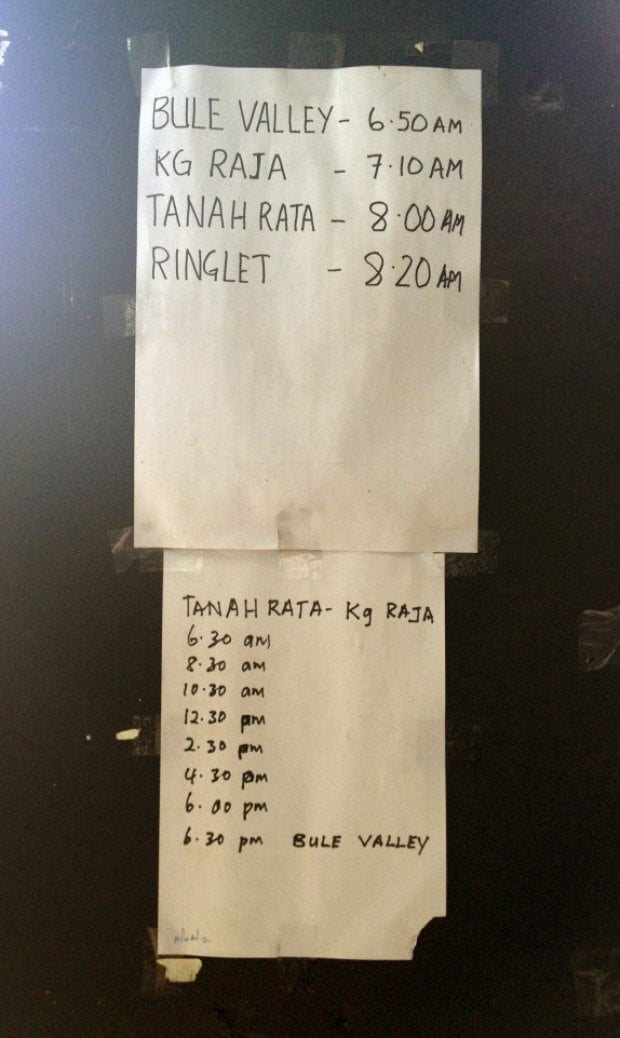 BULE VALLEY - 6.50 AM
KG RAJA - 7.10 AM
TANAH RATA - 8.00 AM
RINGLET - 8.20 AM
TANAH RATA - Kg RAJA
6.30 am
8.30 am
10.30 am
12.30 pm
2.30 pm
4.30 pm
6.00 pm
6.30 pm BULE VALLEY